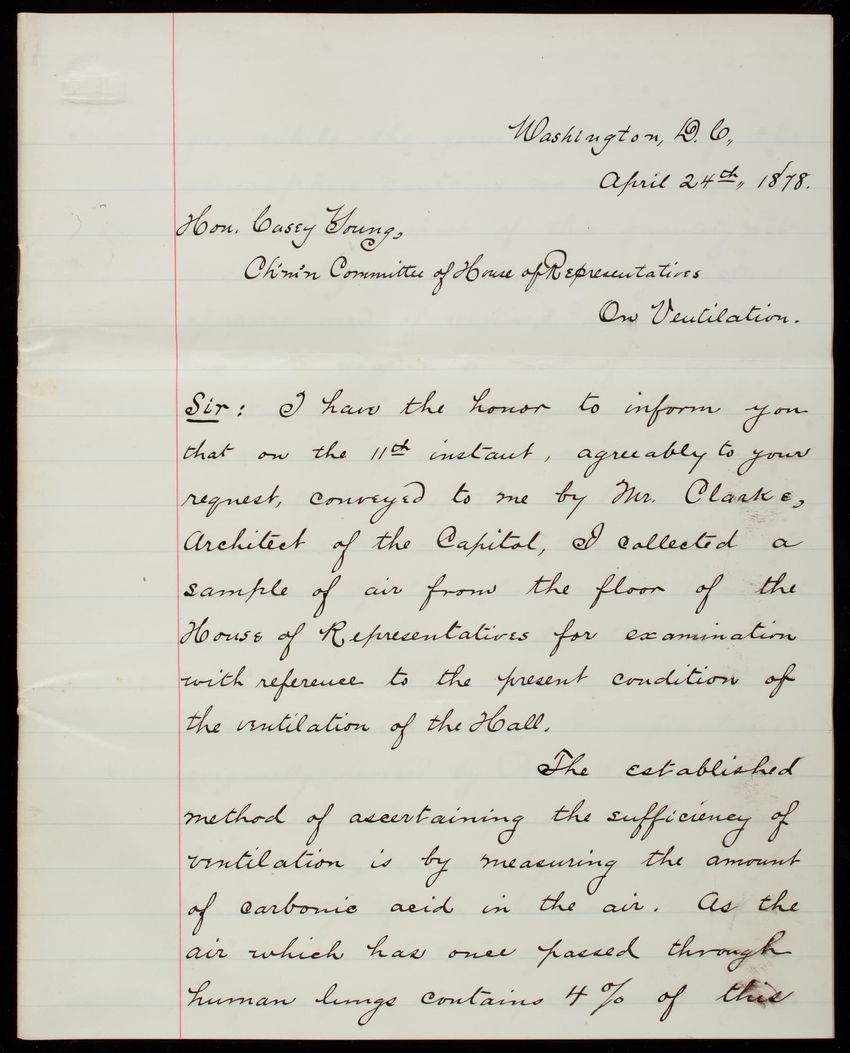 Washington, D.C.,
April 24th, 1878.
Hon. Casey Young,
Ch'm'n Committee of House of Representatives
On Ventilation.
Sir: I have the honor to inform you
that on the 11th instant, agreeably to your
request, conveyed to me by Mr. Clarke,
Architect of the Capitol, I collected a
sample of air from the floor of the
House of Representatives for examination
with reference to the present condition of
the ventilation of the Hall.
The established
method of ascertaining the sufficiency of
ventilation is by measuring the amount
of carbonic acid in the air. As the
air which has once passed through
human lungs contains 4% of this